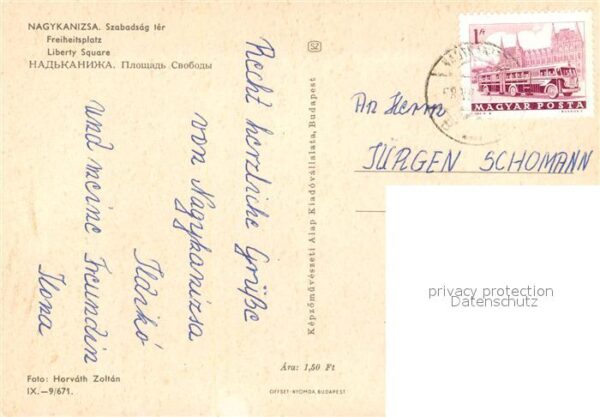 NAGYKANIZSA. Szabadság tér
Freiheitsplatz
Liberty Square
НАДЬКАНИЖА. Площадь Свободы
Recht herzliche Grüße
von Nagykanizsa
Ildikó
und meine Freundin
Ilona
Foto: Horváth Zoltán
IX.—9/671.
Képzőművészeti Alap Kiadóvállalata, Budapest
SZ
Ára: 1,50 Ft
OFFSET-NYOMDA BUDAPEST
1 Ft
MAGYAR POSTA
An Herrn
JÜRGEN SCHOMANN
privacy protection
Datenschutz